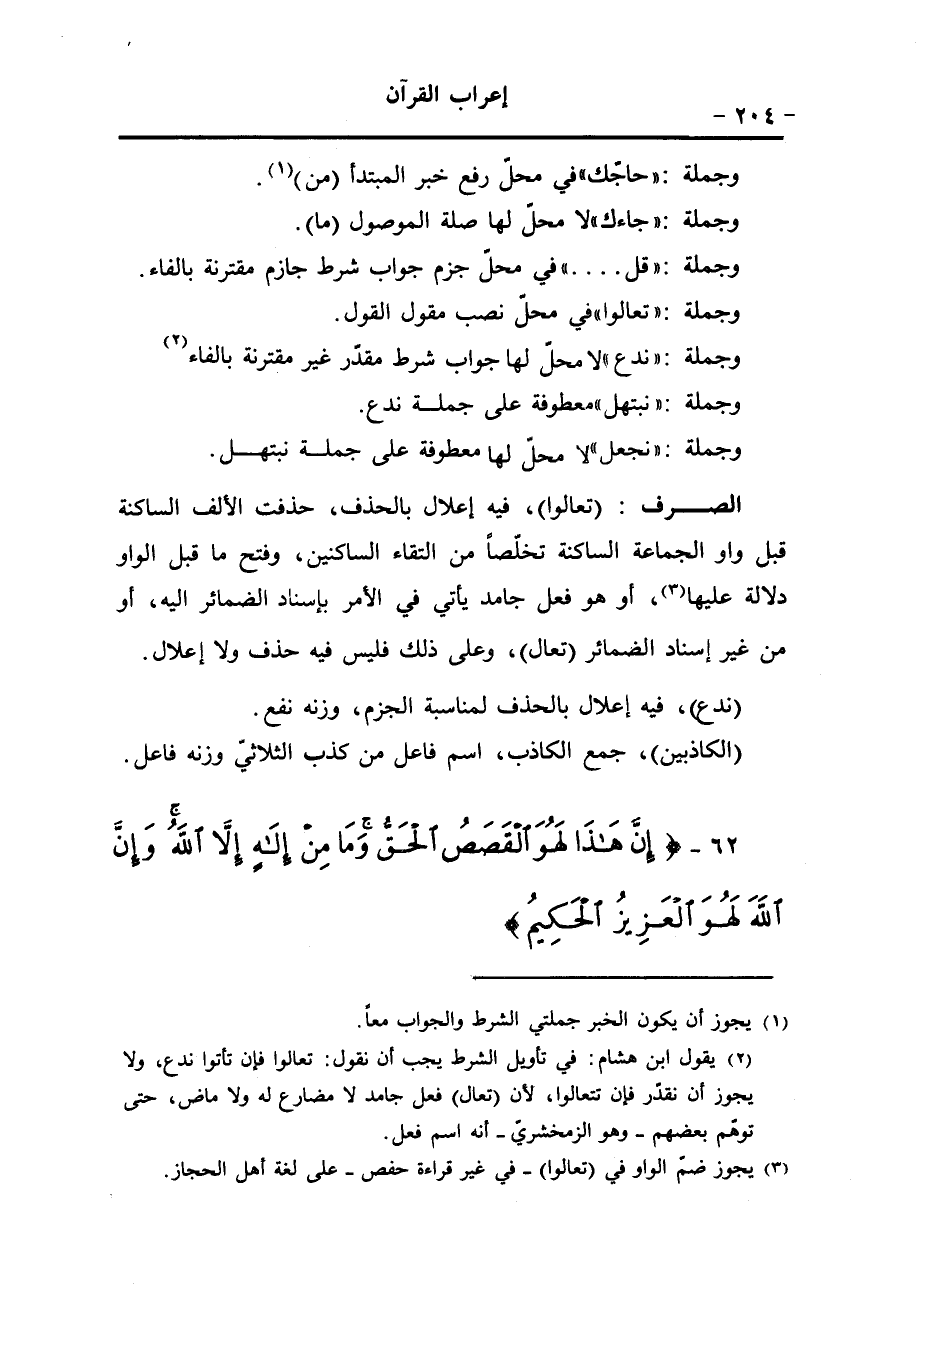 إعراب القرآن
- ٢٠٤ -
وجملة : «حاجّك» في محلّ رفع خبر المبتدأ (من)(١).
وجملة : «جاءك» لا محلّ لها صلة الموصول (ما).
وجملة : «قل . . . .» في محلّ جزم جواب شرط جازم مقترنة بالفاء.
وجملة : «تعالوا» في محلّ نصب مقول القول.
وجملة : «ندع» لا محلّ لها جواب شرط مقدّر غير مقترنة بالفاء(٢)
وجملة : «نبتهل» معطوفة على جملة ندع.
وجملة : «نجعل» لا محلّ لها معطوفة على جملة نبتهل.
الصرف : (تعالوا)، فيه إعلال بالحذف، حذفت الألف الساكنة
قبل واو الجماعة الساكنة تخلّصاً من التقاء الساكنين، وفتح ما قبل الواو
دلالة عليها(٣)، أو هو فعل جامد يأتي في الأمر بإسناد الضمائر اليه، أو
من غير إسناد الضمائر (تعال)، وعلى ذلك فليس فيه حذف ولا إعلال.
(ندع)، فيه إعلال بالحذف لمناسبة الجزم، وزنه نفع.
(الكاذبين)، جمع الكاذب، اسم فاعل من كذب الثلاثيّ وزنه فاعل.
٦٢ - ﴿ إِنَّ هَـٰذَا لَهُوَ ٱلْقَصَصُ ٱلْحَقُّ ۚ وَمَا مِنْ إِلَـٰهٍ إِلَّا ٱللَّهُ ۚ وَإِنَّ
ٱللَّهَ لَهُوَ ٱلْعَزِيزُ ٱلْحَكِيمُ ﴾
(١) يجوز أن يكون الخبر جملتي الشرط والجواب معاً.
(٢) يقول ابن هشام: في تأويل الشرط يجب أن نقول: تعالوا فإن تأتوا ندع، ولا
يجوز أن نقدّر فإن تتعالوا، لأن (تعال) فعل جامد لا مضارع له ولا ماض، حتى
توهّم بعضهم - وهو الزمخشريّ - أنه اسم فعل.
(٣) يجوز ضمّ الواو في (تعالوا) - في غير قراءة حفص - على لغة أهل الحجاز.